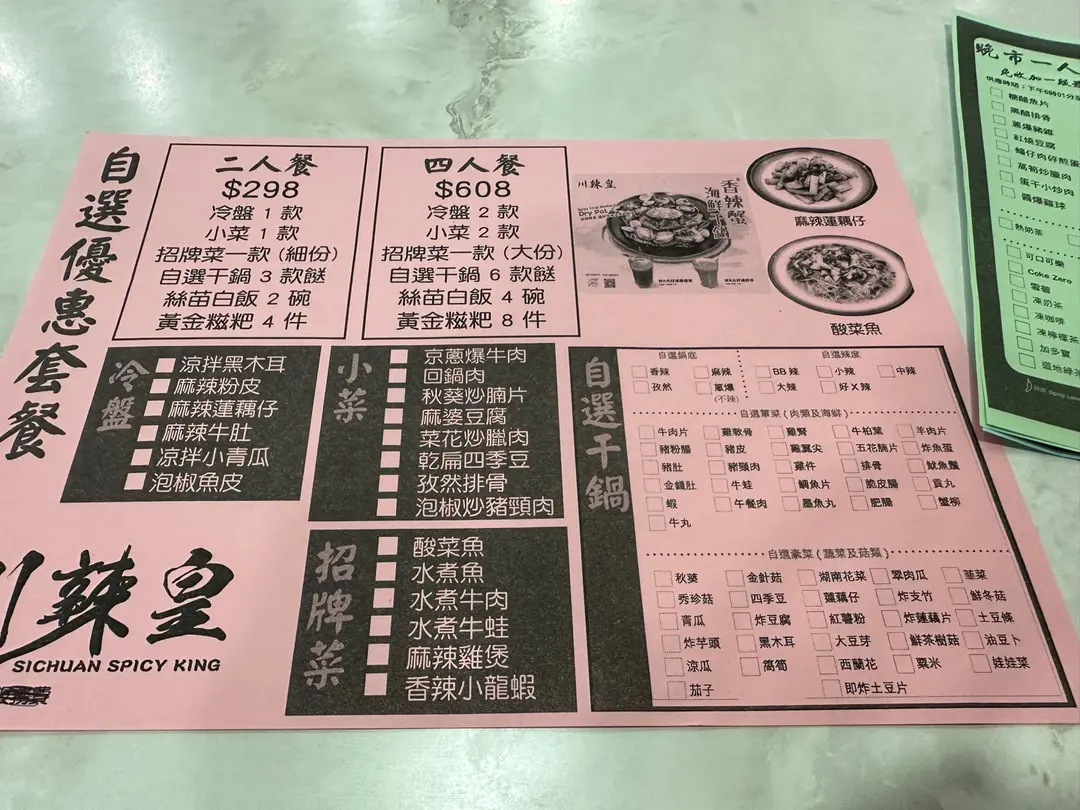 自選優惠套餐
二人餐
$298
冷盤 1 款
小菜 1 款
招牌菜一款 (細份)
自選干鍋 3 款餸
絲苗白飯 2 碗
黃金糍粑 4 件
四人餐
$608
冷盤 2 款
小菜 2 款
招牌菜一款 (大份)
自選干鍋 6 款餸
絲苗白飯 4 碗
黃金糍粑 8 件
川辣皇
香辣蟹
海鮮干鍋
Dry Pot
麻辣蓮藕仔
酸菜魚
冷盤
涼拌黑木耳
麻辣粉皮
麻辣蓮藕仔
麻辣牛肚
涼拌小青瓜
泡椒魚皮
小菜
京蔥爆牛肉
回鍋肉
秋葵炒腩片
麻婆豆腐
菜花炒臘肉
乾扁四季豆
孜然排骨
泡椒炒豬頸肉
招牌菜
酸菜魚
水煮魚
水煮牛肉
水煮牛蛙
麻辣雞煲
香辣小龍蝦
自選干鍋
自選鍋底 自選辣度
香辣 麻辣 BB 辣 小辣 中辣
孜然 蔥爆 大辣 好 X 辣
(不辣)
自選葷菜 (肉類及海鮮)
牛肉片 雞軟骨 雞腎 牛柏葉 羊肉片
豬粉腸 豬皮 雞翼尖 五花腩片 炸魚蛋
豬肚 豬頸肉 雞件 排骨 魷魚鬚
金錢肚 牛蛙 鯛魚片 脆皮腸 貢丸
蝦 午餐肉 墨魚丸 肥腸 蟹柳
牛丸
自選素菜 (蔬菜及菇類)
秋葵 金針菇 湖南花菜 翠肉瓜 韮菜
秀珍菇 四季豆 蓮藕仔 炸支竹 鮮冬菇
青瓜 炸豆腐 紅薯粉 炸蓮藕片 土豆條
炸芋頭 黑木耳 大豆芽 鮮茶樹菇 油豆卜
涼瓜 萵筍 西蘭花 粟米 娃娃菜
茄子 即炸土豆片
川辣皇
SICHUAN SPICY KING
晚市一人
免收加一服
供應時間：下午6時01分至
糖醋魚片
黑醋排骨
蔥爆豬雜
紅燒豆腐
蠔仔肉碎煎蛋
萵筍炒臘肉
蛋干小炒肉
醬爆雞球
熱奶茶
可口可樂
Coke Zero
雪碧
凍奶茶
凍咖啡
凍檸檬茶
加多寶
道地綠茶